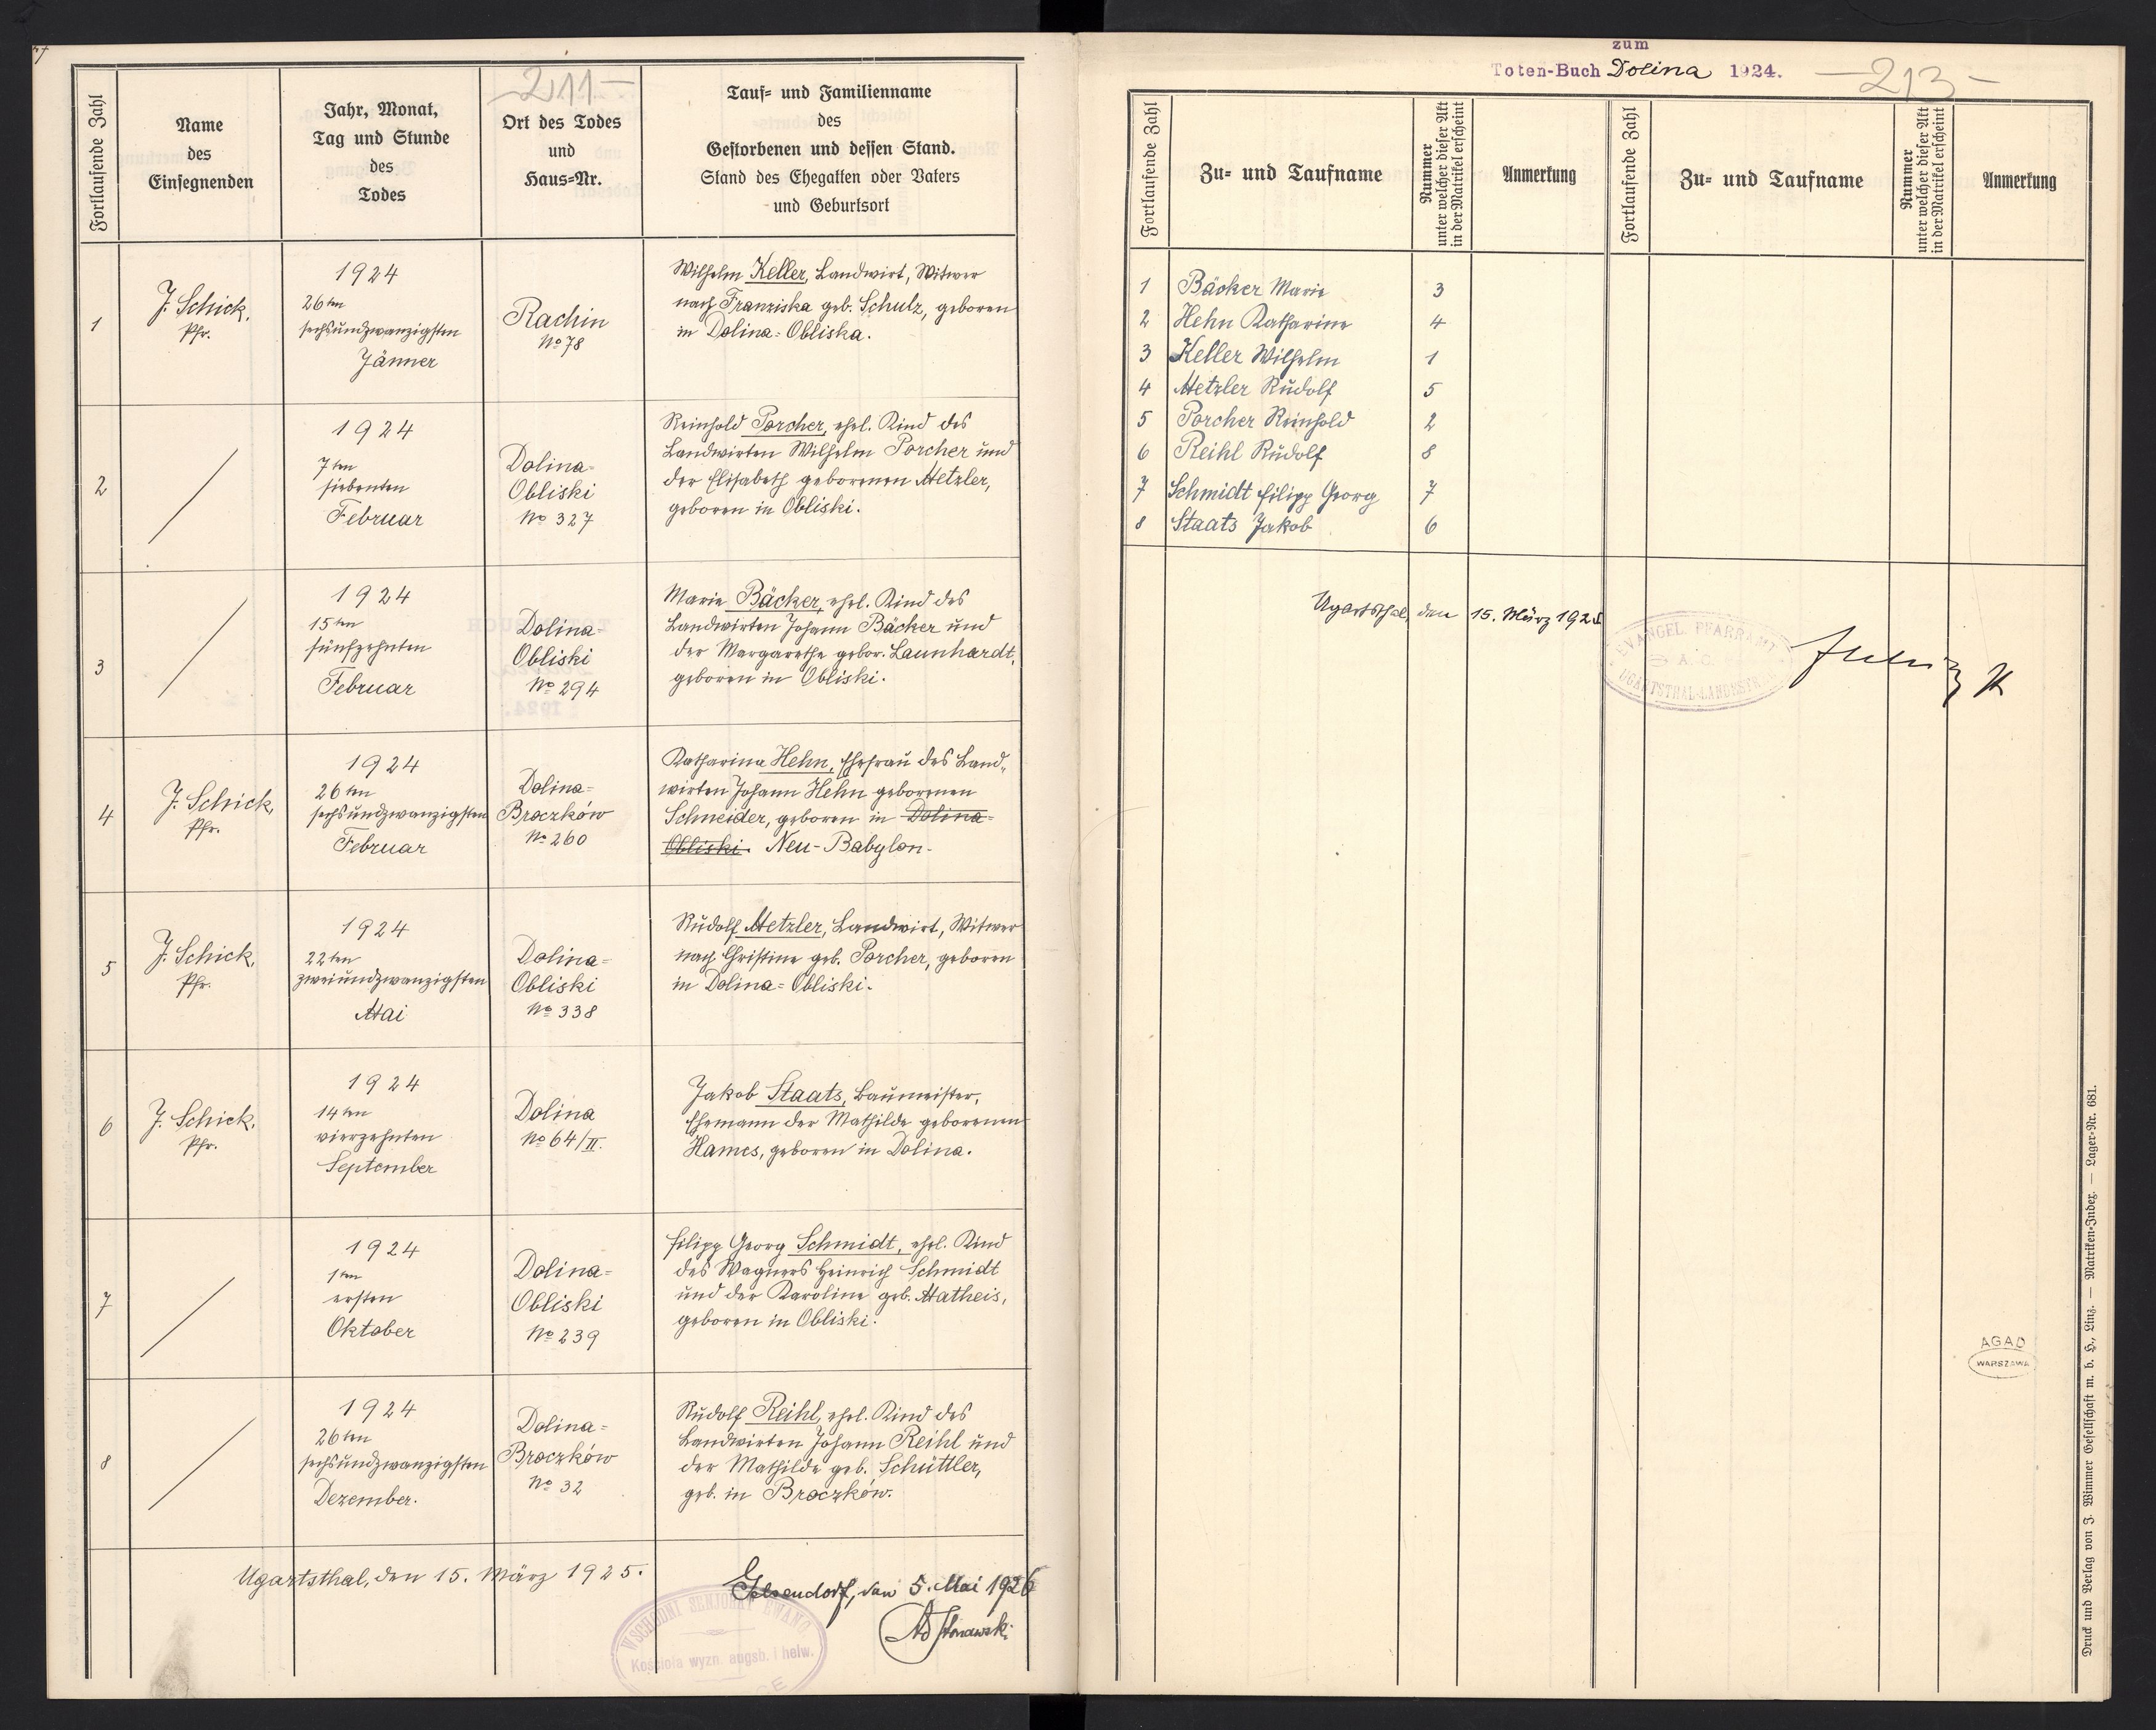 -211-
Fortlaufende Zahl
Name
des
Einsegnenden
Jahr, Monat,
Tag und Stunde
des
Todes
Ort des Todes
und
Haus-Nr.
Tauf- und Familienname
des
Gestorbenen und dessen Stand.
Stand des Ehegatten oder Vaters
und Geburtsort
1
J. Schick,
Pfr.
1924
26ten
sechsundzwanzigsten
Jänner
Rachin
No 78
Wilhelm Keller, Landwirt, Witwer
nach Franziska geb. Schulz, geboren
in Dolina-Obliska.
2
1924
7ten
siebenten
Februar
Dolina-
Obliski
No 327
Reinhold Porcher, ehel. Kind des
Landwirten Wilhelm Porcher und
der Elisabeth geborenen Metzler,
geboren in Obliski.
3
1924
15ten
fünfzehnten
Februar
Dolina-
Obliski
No 294
Marie Bäcker, ehel. Kind des
Landwirten Johann Bäcker und
der Margarethe gebor. Launhardt,
geboren in Obliski.
4
J. Schick,
Pfr.
1924
26ten
sechsundzwanzigsten
Februar
Dolina-
Broczków
No 260
Katharina Hehn, Ehefrau des Land-
wirten Johann Hehn geborenen
Schneider, geboren in Dolina-
Obliski. Neu-Babylon.
5
J. Schick,
Pfr.
1924
22ten
zweiundzwanzigsten
Mai
Dolina-
Obliski
No 338
Rudolf Metzler, Landwirt, Witwer
nach Christine geb. Porcher, geboren
in Dolina-Obliski.
6
J. Schick,
Pfr.
1924
14ten
vierzehnten
September
Dolina
No 64/II.
Jakob Staats, Baumeister,
Ehemann der Mathilde geborenen
Hames, geboren in Dolina.
7
1924
1ten
ersten
Oktober
Dolina-
Obliski
No 239
Filipp Georg Schmidt, ehel. Kind
des Wagners Heinrich Schmidt
und der Karoline geb. Matheis,
geboren in Obliski.
8
1924
26ten
sechsundzwanzigsten
Dezember.
Dolina-
Broczków
No 32
Rudolf Reihl, ehel. Kind des
Landwirten Johann Reihl und
der Mathilde geb. Schüttler,
geb. in Broczków.
Ugartsthal, den 15. März 1925.
Gelsendorf, den 5. Mai 1926
WSCHODNI SENJORAT EWANG
Kościoła wyzn. augsb. i helw.
zum
Toten-Buch Dolina 1924.
-213-
Fortlaufende Zahl
Zu- und Taufname
Nummer
unter welcher dieser Akt
in der Matrikel erscheint
Anmerkung
Fortlaufende Zahl
Zu- und Taufname
Nummer
unter welcher dieser Akt
in der Matrikel erscheint
Anmerkung
1 Bäcker Marie 3
2 Hehn Katharine 4
3 Keller Wilhelm 1
4 Metzler Rudolf 5
5 Porcher Reinhold 2
6 Reihl Rudolf 8
7 Schmidt Filipp Georg 7
8 Staats Jakob 6
Ugartsthal, den 15. März 1925
EVANGEL. PFARRAMT
A. C.
UGARTSTHAL-LANDESTREU
AGAD
WARSZAWA
Druck und Verlag von J. Wimmer Gesellschaft m. b. H., Linz. — Matriken-Index. — Lager-Nr. 681.